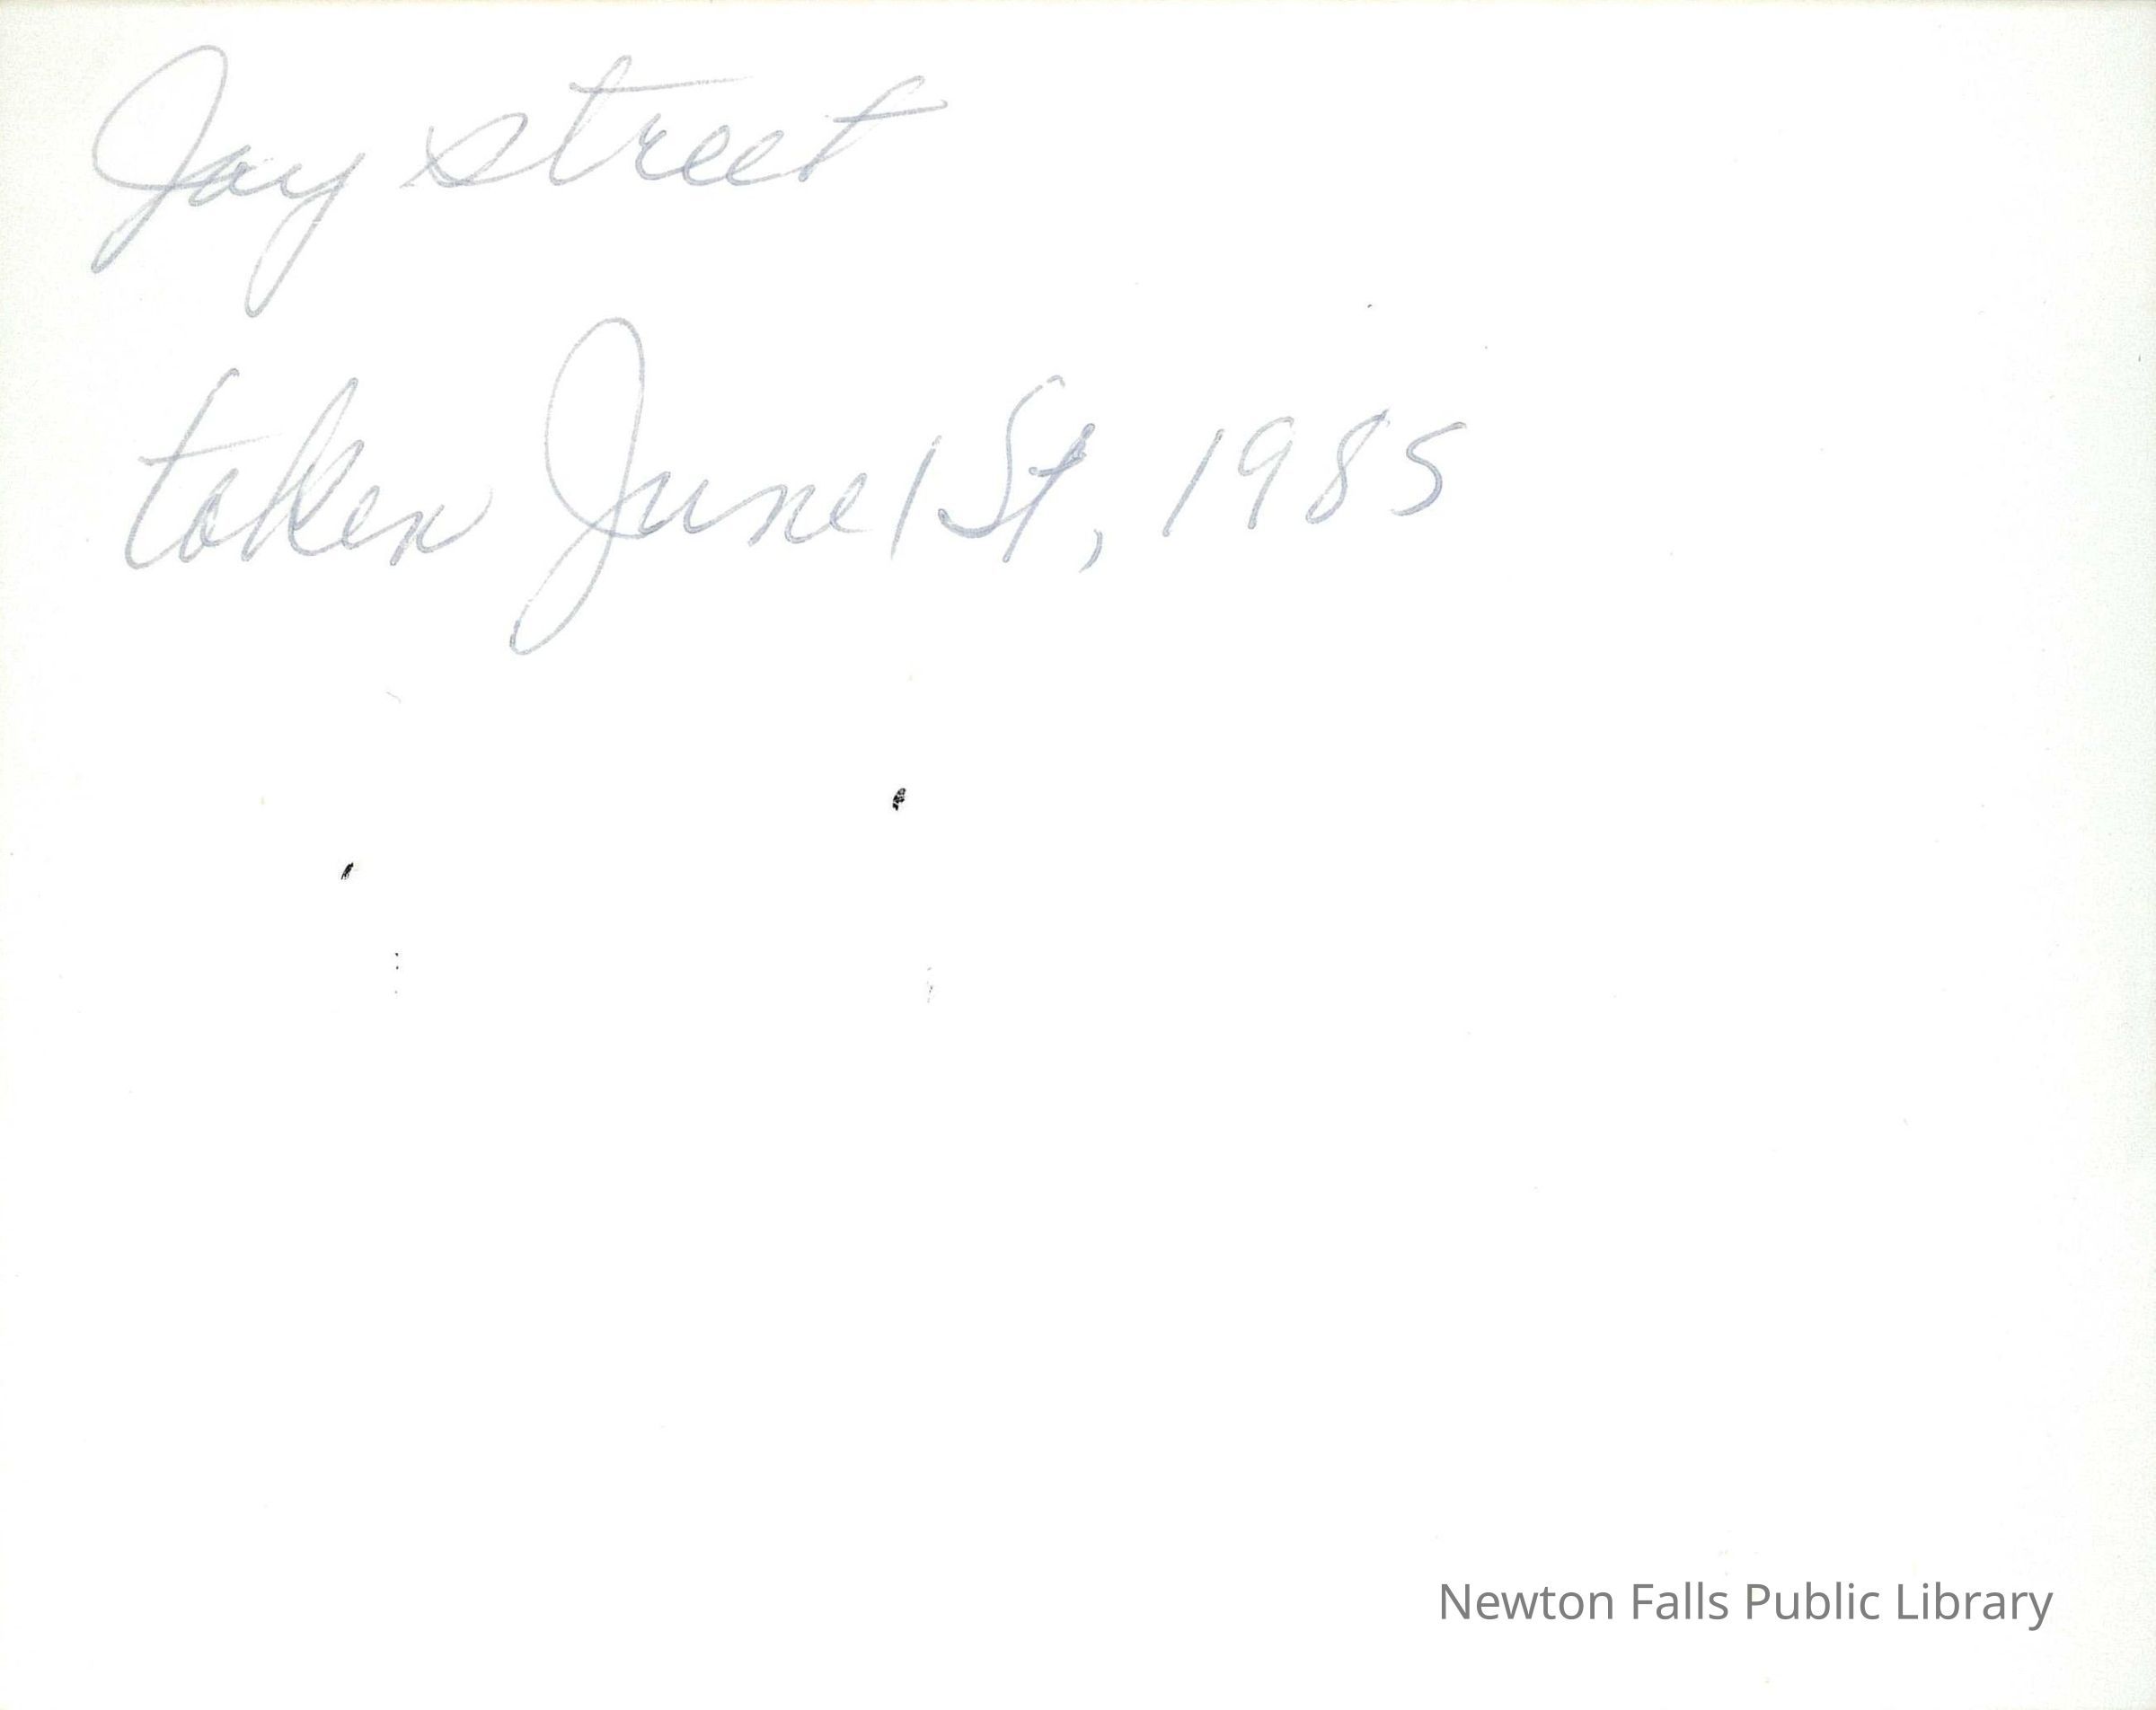 Jay street
taken June 1St, 1985
Newton Falls Public Library